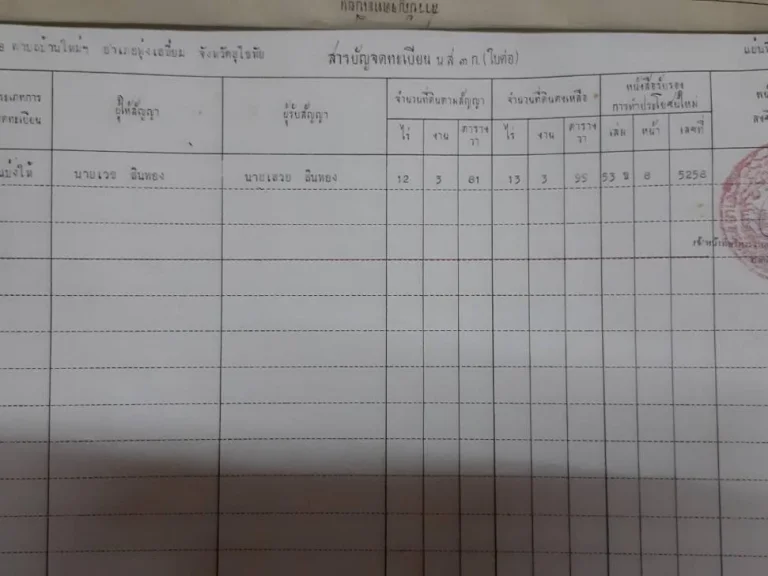 สารบัญจดทะเบียน
ตำบลบ้านใหม่ฯ อำเภอทุ่งเสลี่ยม จังหวัดสุโขทัย สารบัญจดทะเบียน น.ส. ๓ ก. (ใบต่อ) แผ่นที่
ประเภทการ
จดทะเบียน
ผู้ให้สัญญา
ผู้รับสัญญา
จำนวนที่ดินตามสัญญา
ไร่ งาน ตาราง
วา
จำนวนที่ดินคงเหลือ
ไร่ งาน ตาราง
วา
หนังสือรับรอง
การทำประโยชน์ใหม่
เล่ม หน้า เลขที่
แบ่งให้ นายเวช อินทอง 12 3 81 13 3 95 53 ข 8 5258